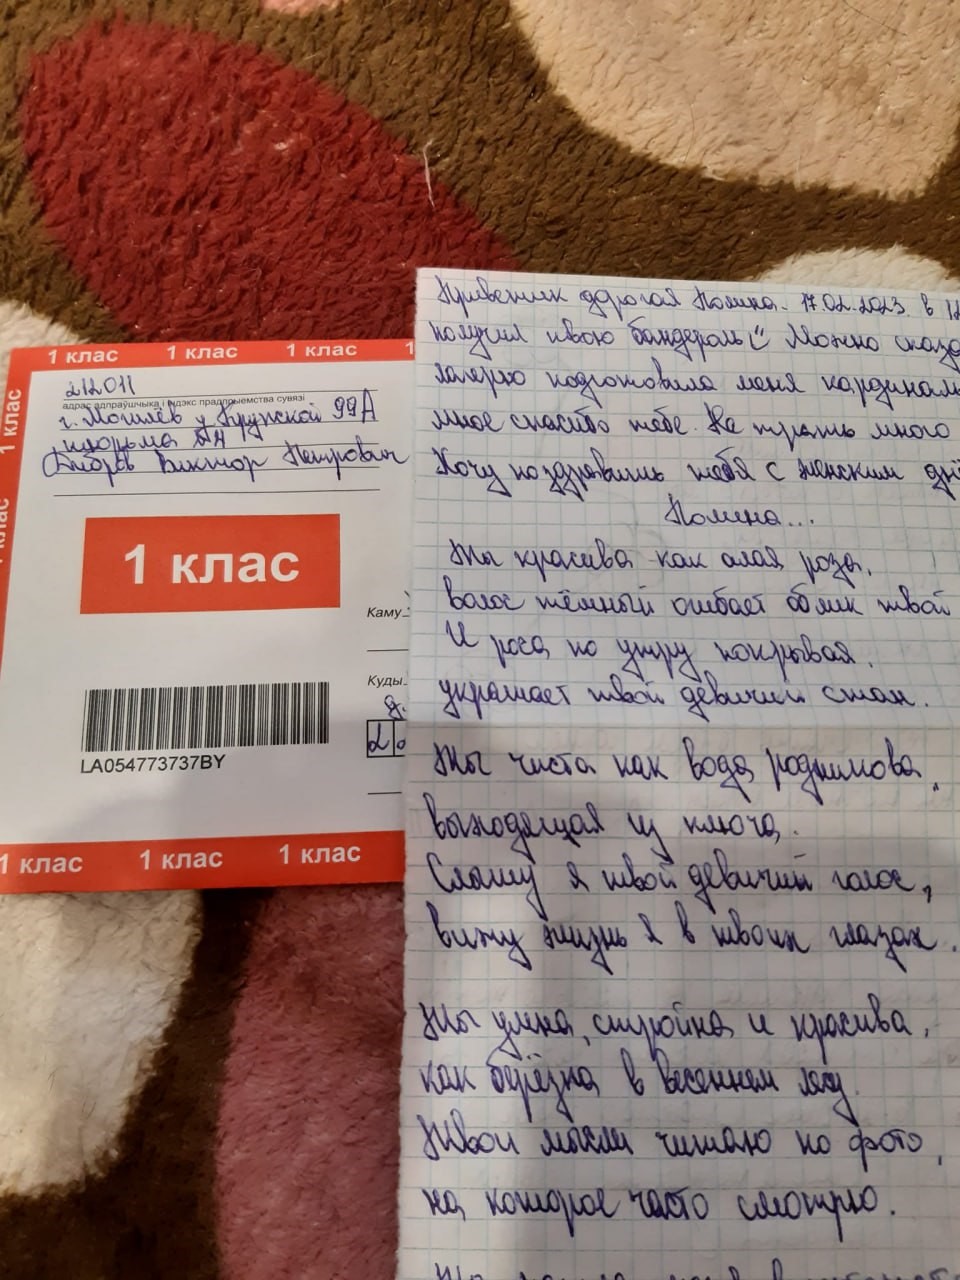 1 клас 1 клас 1 клас 1
1 клас
212011
адрас адпраўшчыка і індэкс прадпрыемства сувязі
г. Могилёв у Крупской 99А
тюрьма
Виктор Петрович
1 клас
Каму
Куды
LA054773737BY
1 клас 1 клас 1 клас
Приветик дорогая Полина. 17.02.2023. в
получил твою бандероль Можно
лагерю подготовила меня
мное спасибо тебе. На трать много
Хочу поздравить тебя с женским
Полина...
Ты красива как алая роза,
волос тёмный огибает облик твой
И роса по утру покрывая,
украшает твой девичий стан.
Ты чиста как вода родникова,
выходящая из ключа.
Слышу я твой девичий голос,
вижу жизнь я в твоих глазах.
Ты умна, стройна и красива,
как берёзка в весеннем лесу.
Твои мысли читаю по фото,
на которое часто смотрю.